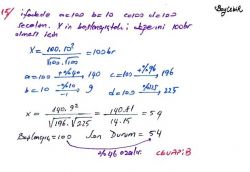 Başlanık
15/ ifadede a=100 b=10 c=100 d=100
secelim. X in başlangıçtaki değerini 100br
olması için
X = 100.10² / √100.√100 = 100br
a=100 +%40 140 c=100 +%96 196
b=10 -%10 -1 9 d=100 %125 225
x = 140.9² / √196.√225 = 140.81 / 14.15 = 54
Başlangıç=100 Son Durum = 54
%46 azalır. CEVAP:B